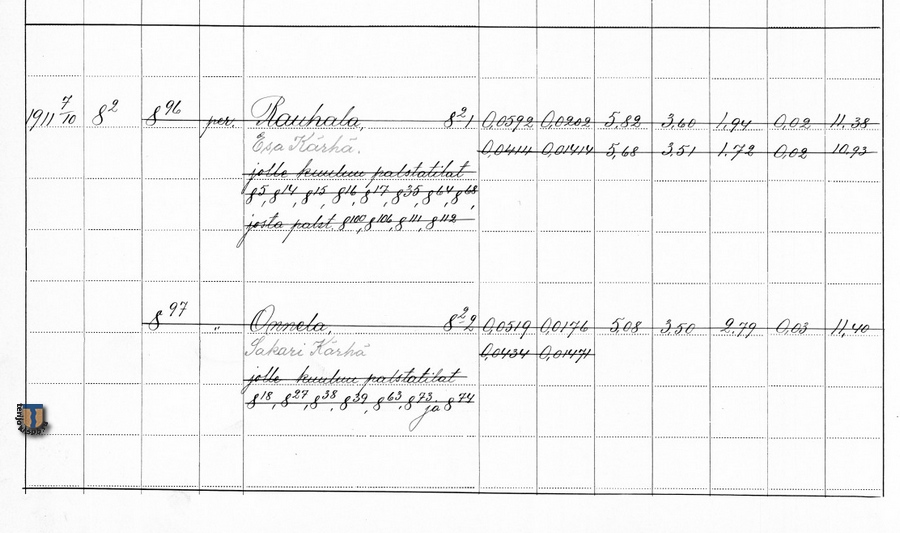 1911 7/10 8² 8⁹⁶ per. Rauhala, 8²1 0,0592 0,0202 5,82 3,60 1,94 0,02 11,38
Esa Kärhä. 0,0414 0,01414 5,68 3,51 1.72 0,02 10,93
jolle kuuluu palstatilat
8⁵, 8¹⁴, 8¹⁵, 8¹⁶, 8¹⁷, 8³⁵, 8⁶⁴, 8⁶⁸,
josta palst. 8¹⁰⁰, 8¹⁰⁶, 8¹¹¹, 8¹¹²
8⁹⁷ „ Onnela, 8²2 0,0519 0,0176 5,08 3,50 2,79 0,03 11,40
Sakari Kärhä 0,0434 0,01471
jolle kuuluu palstatilat
8¹⁸, 8²⁷, 8³⁸, 8³⁹, 8⁶³, 8⁷³, ja 8⁷⁴